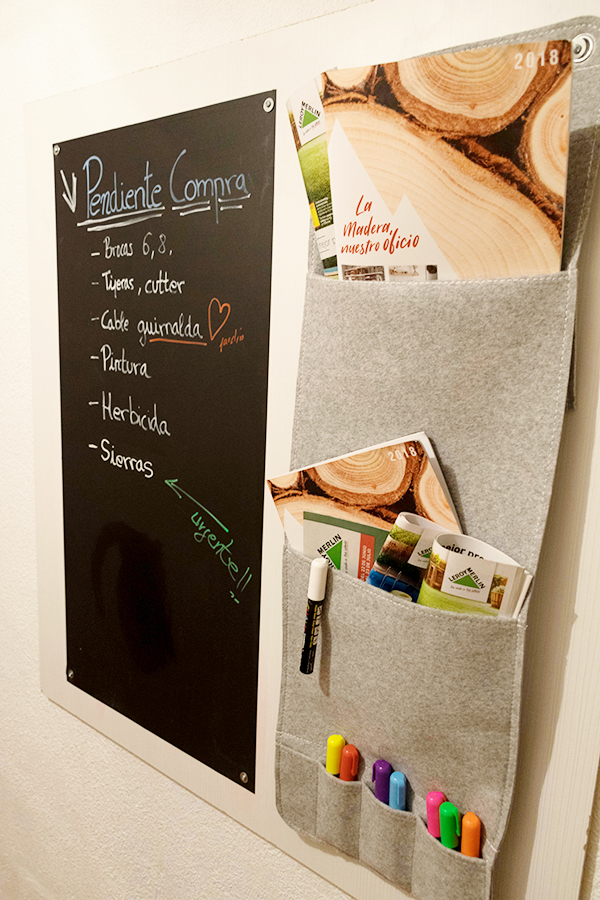 Pendiente Compra
- Brocas 6, 8,
- Tijeras, cutter
- Cable guirnalda
- Pintura
- Herbicida
- Sierras
urgente!!
2018
LEROY MERLIN
La
Madera,
nuestro oficio
2018
LEROY MERLIN
LEROY MERLIN